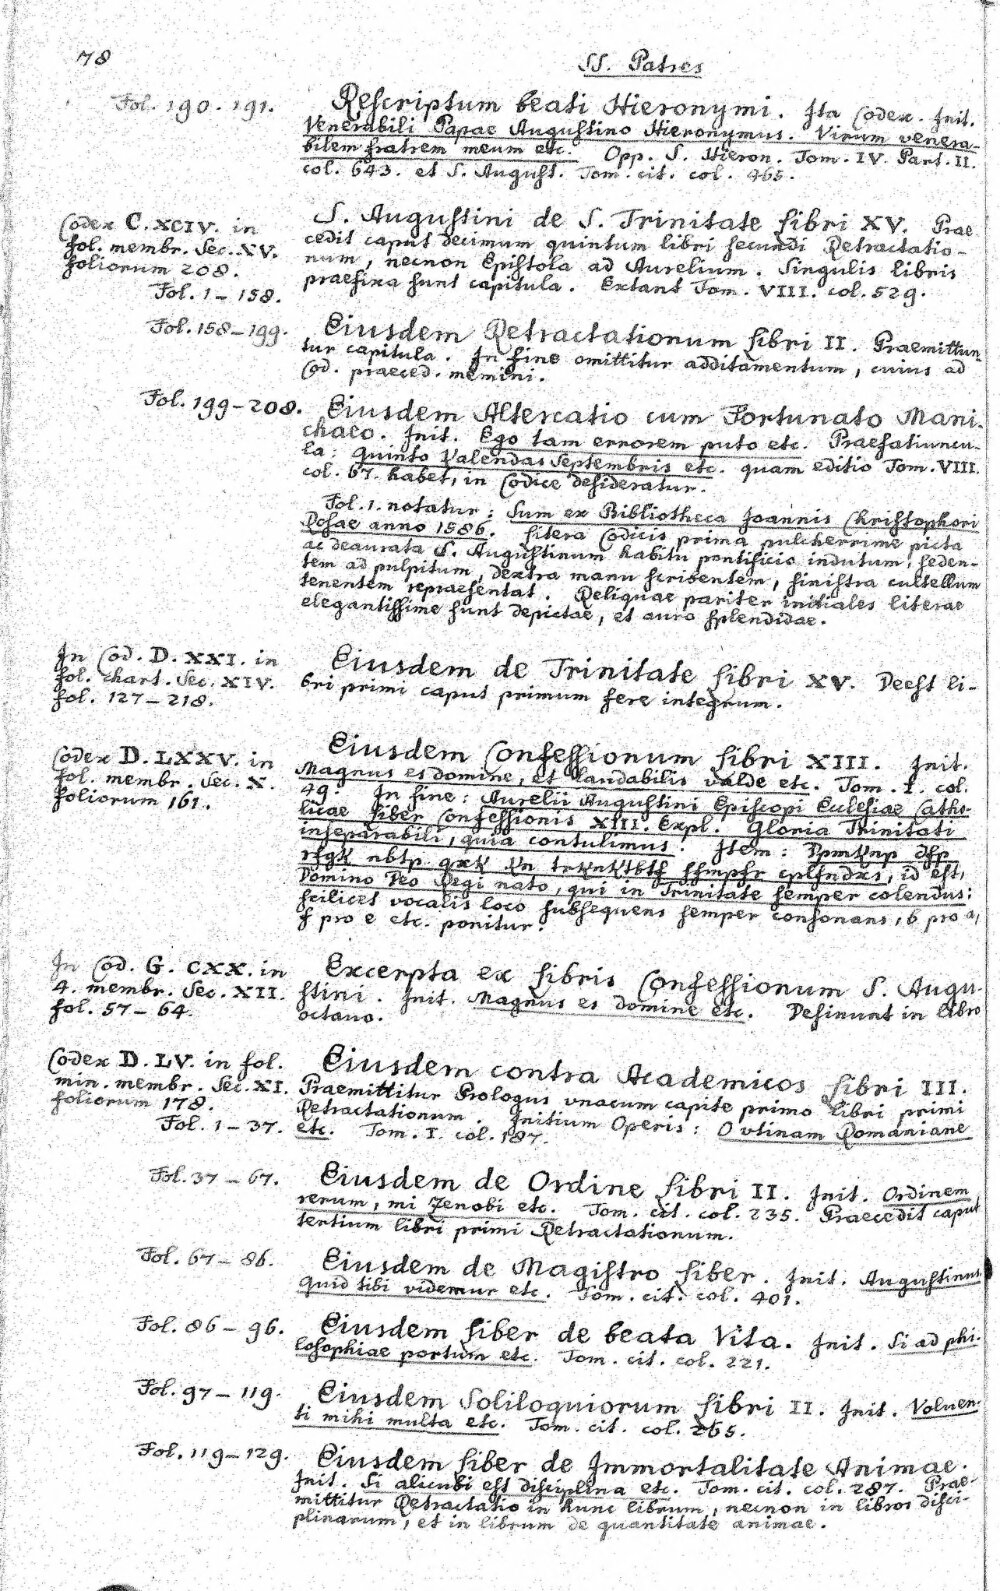 78
SS. Patres
Fol. 190. 191.
Rescriptum beati Hieronymi. Ita Codex. Init.
Venerabili Papae Augustino Hieronymus. Virum venera-
bilem fratrem meum etc. Opp. S. Hieron. Tom. IV. Part. II.
col. 643. et S. August. Tom. cit. col. 465.
Codex C. XCIV. in
fol. membr. Sec. XV.
foliorum 208.
Fol. 1 – 158.
S. Augustini de S. Trinitate Libri XV. Prae
cedit caput decimum quintum libri secundi Retractatio-
num, necnon Epistola ad Aurelium. Singulis libris
praefixa sunt capitula. Extant Tom. VIII. col. 529.
Fol. 158–199.
Eiusdem Retractationum Libri II. Praemittun-
tur capitula. In fine omittitur additamentum, cuius ad
Cod. praeced. memini.
Fol. 199–208.
Eiusdem Altercatio cum Fortunato Mani-
chaeo. Init. Ego iam errorem puto etc. Praefatiuncu-
la: Quinto Kalendas Septembris etc. quam editio Tom. VIII.
col. 67. habet, in Codice desideratur.
Fol. 1. notatur: Sum ex Bibliotheca Joannis Christophori
Rosae anno 1586. Litera Codicis prima pulcherrime picta
ac deaurata S. Augustinum habitu pontificio indutum, seden-
tem ad pulpitum, dextra manu scribentem, sinistra cultellum
tenentem repraesentat. Reliquae pariter initiales literae
elegantissime sunt depictae, et auro splendidae.
In Cod. D. XXI. in
fol. chart. Sec. XIV.
fol. 127–218.
Eiusdem de Trinitate Libri XV. Deest li-
bri primi caput primum fere integrum.
Codex D. LXXV. in
fol. membr. Sec. X.
foliorum 161.
Eiusdem Confessionum Libri XIII. Init.
Magnus es domine, et laudabilis valde etc. Tom. I. col.
49. In fine: Aurelii Augustini Episcopi Eclesiae Catho-
licae Liber Confessionis XIII. Expl. Gloria Trinitati
inseparabili, quia contulimus. Item:
Domino Deo Regi nato, qui in Trinitate semper colendus:
scilicet vocalis loco subsequens semper consonans, b pro a,
f pro e etc. ponitur.
In Cod. G. CXX. in
4. membr. Sec. XII.
fol. 57–64.
Excerpta ex Libris Confessionum S. Augu-
stini. Init. Magnus es domine etc. Desinunt in libro
octavo.
Codex D. LV. in fol.
min. membr. Sec. XI.
foliorum 178.
Fol. 1–37.
Eiusdem contra Academicos Libri III.
Praemittitur Prologus vnacum capite primo libri primi
Retractationum. Initium Operis: O vtinam Romaniane
etc. Tom. I. col. 187.
Fol. 37 – 67.
Eiusdem de Ordine Libri II. Init. Ordinem
rerum, mi Zenobi etc. Tom. cit. col. 235. Praecedit caput
tertium libri primi Retractationum.
Fol. 67– 86.
Eiusdem de Magistro Liber. Init. Augustinus.
Quid tibi videmur etc. Tom. cit. col. 401.
Fol. 86 – 96.
Eiusdem Liber de beata Vita. Init. Si ad phi-
losophiae portum etc. Tom. cit. col. 221.
Fol. 97 – 119.
Eiusdem Soliloquiorum Libri II. Init. Voluen-
ti mihi multa etc. Tom. cit. col. 265.
Fol. 119–129.
Eiusdem Liber de Immortalitate Animae.
Init. Si alicubi est disciplina etc. Tom. cit. col. 287. Prae-
mittitur Retractatio in hunc librum, necnon in libros disci-
plinarum, et in librum de quantitate animae.